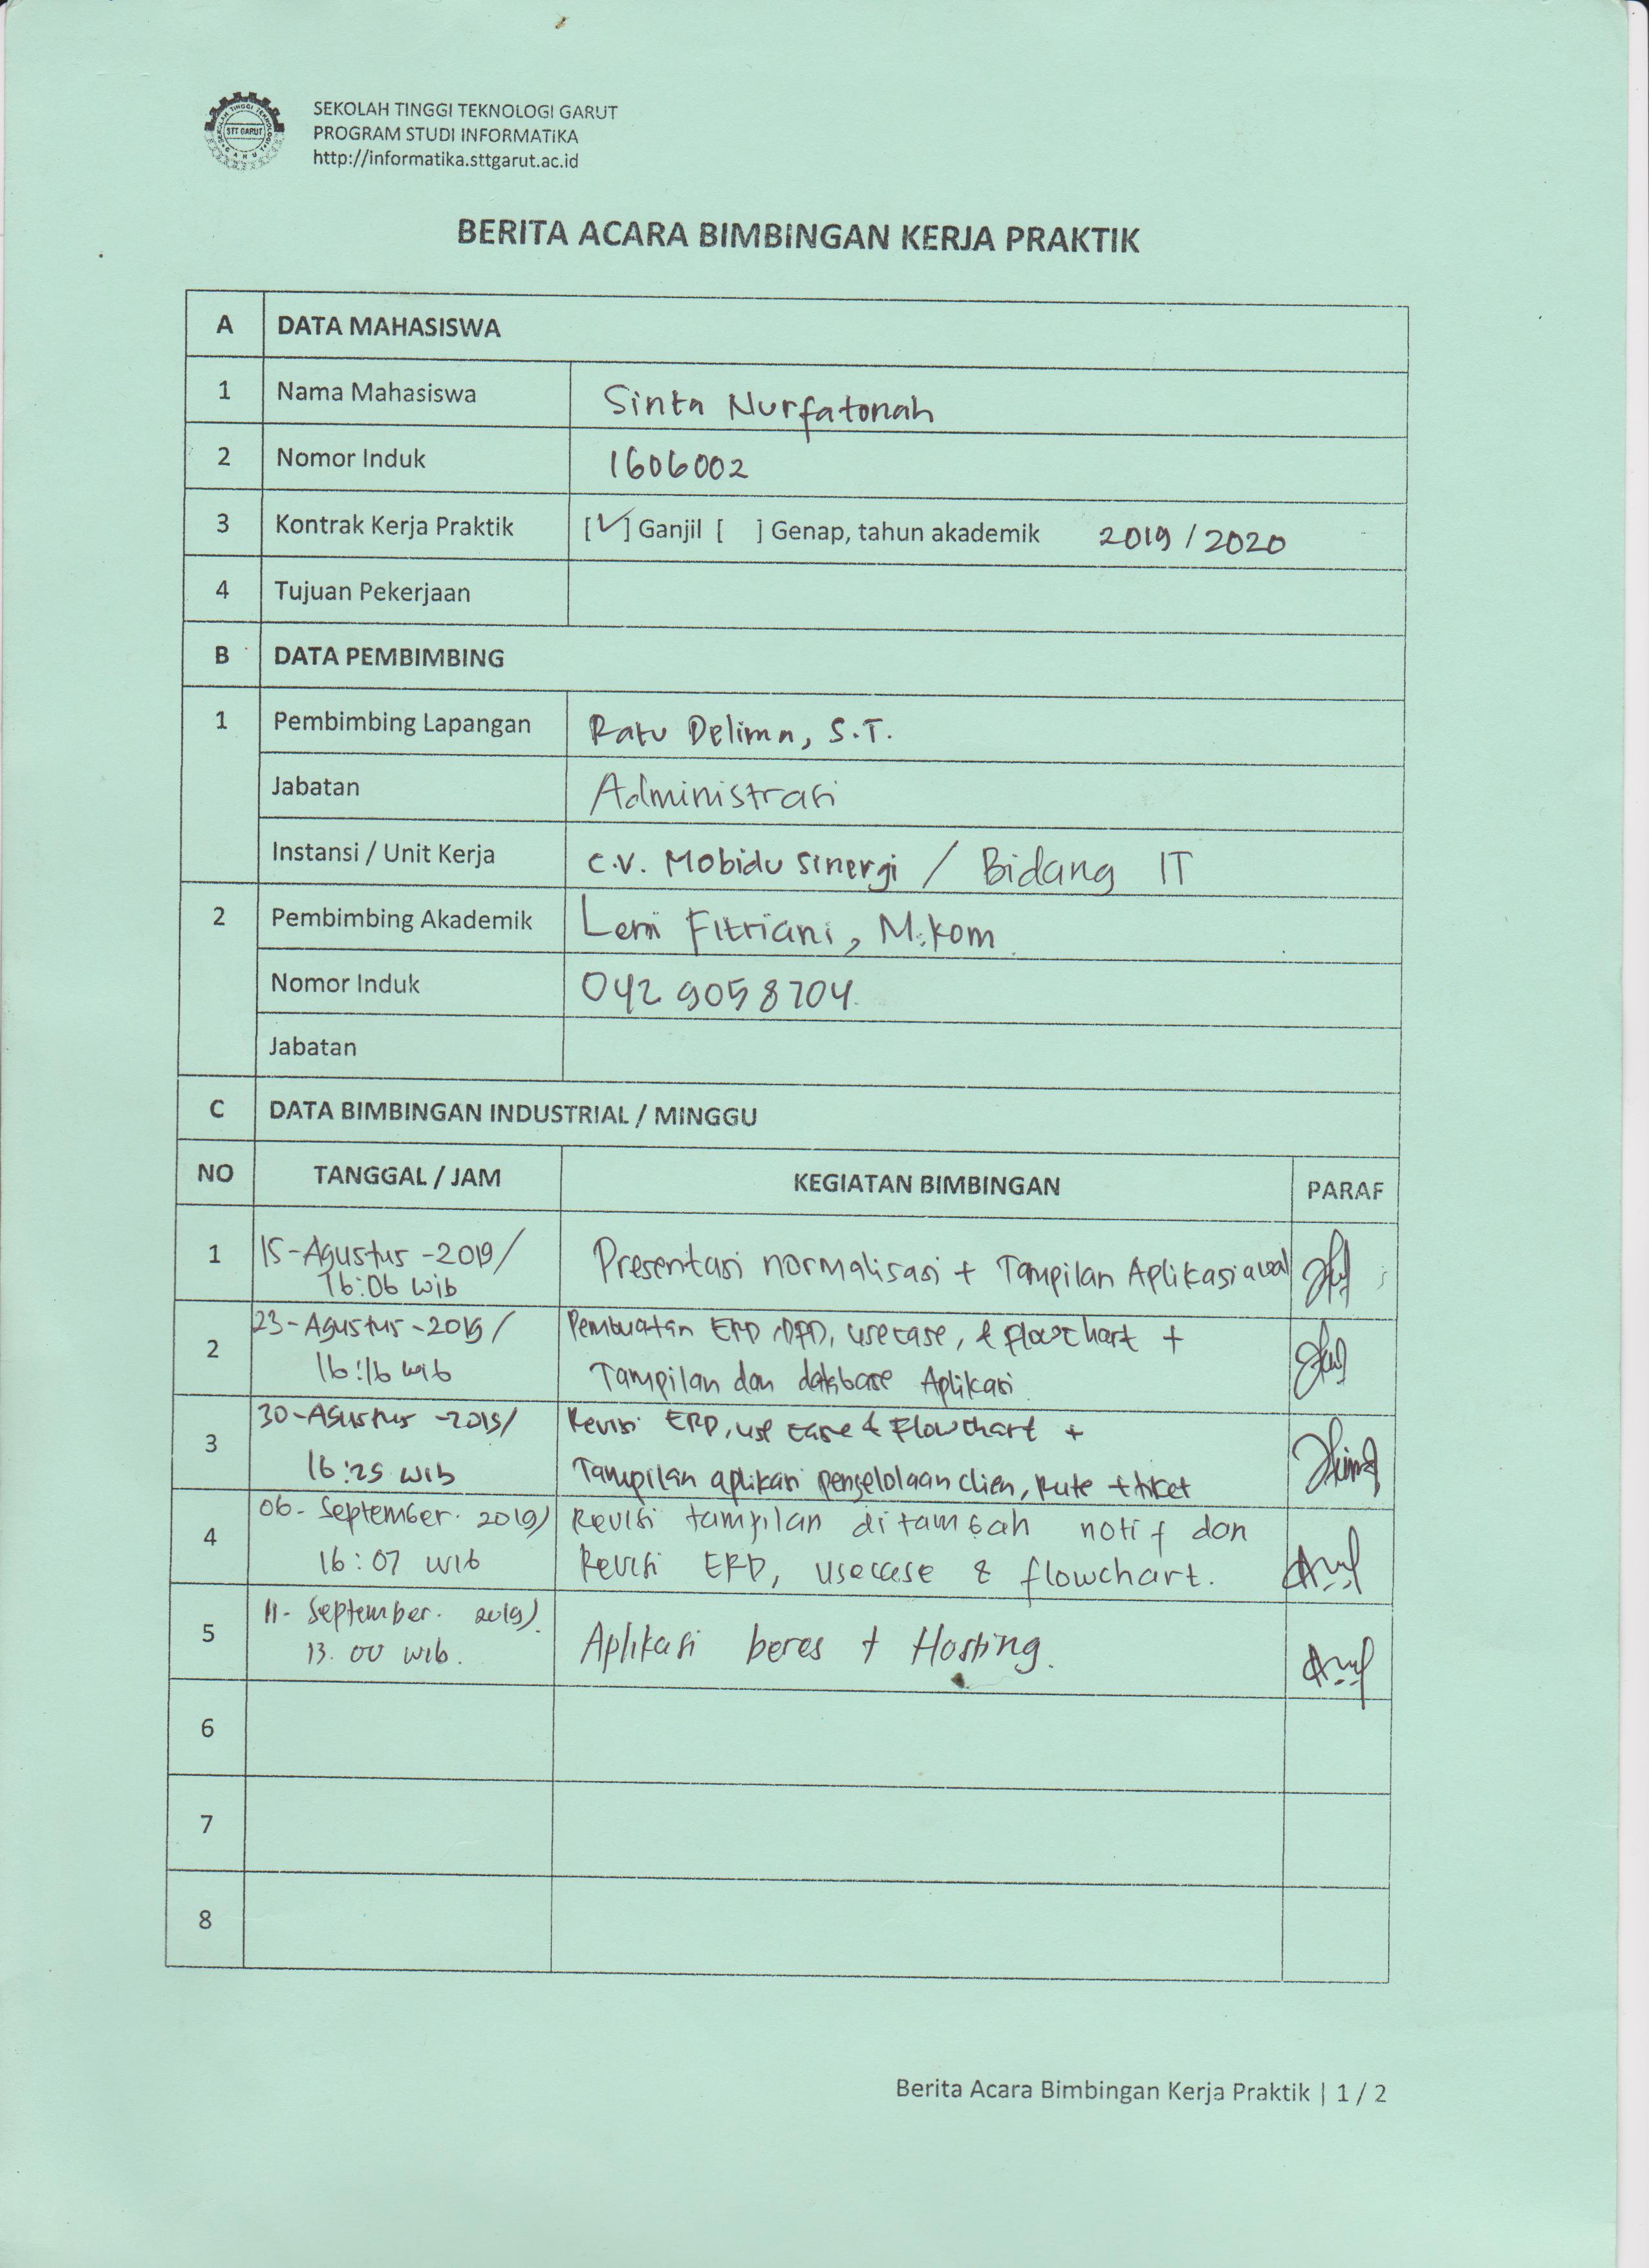 STT GARUT
SEKOLAH TINGGI TEKNOLOGI GARUT
PROGRAM STUDI INFORMATIKA
http://informatika.sttgarut.ac.id
BERITA ACARA BIMBINGAN KERJA PRAKTIK
A DATA MAHASISWA
1 Nama Mahasiswa Sinta Nurfatonah
2 Nomor Induk 1606002
3 Kontrak Kerja Praktik [✓] Ganjil [ ] Genap, tahun akademik 2019 / 2020
4 Tujuan Pekerjaan
B DATA PEMBIMBING
1 Pembimbing Lapangan Ratu Delima, S.T.
Jabatan Administrasi
Instansi / Unit Kerja C.V. Mobidu Sinergi / Bidang IT
2 Pembimbing Akademik Leni Fitriani, M.Kom
Nomor Induk 0429058704.
Jabatan
C DATA BIMBINGAN INDUSTRIAL / MINGGU
NO TANGGAL / JAM KEGIATAN BIMBINGAN PARAF
1 15-Agustus-2019/ Presentasi normalisasi + Tampilan Aplikasi awal
16:06 wib
2 23-Agustus-2019/ Pembuatan ERD, DFD, usecase, & flowchart +
16:16 wib Tampilan dan database Aplikasi
3 30-Agustus-2019/ Revisi ERD, use case & Flowchart +
16:25 wib Tampilan aplikasi pengelolaan Clien, Rute + tiket
4 06-September. 2019/ Revisi tampilan ditambah notif dan
16:07 wib Revisi ERD, usecase & flowchart.
5 11-September. 2019/ Aplikasi beres + Hosting.
13.00 wib.
6
7
8
Berita Acara Bimbingan Kerja Praktik | 1 / 2